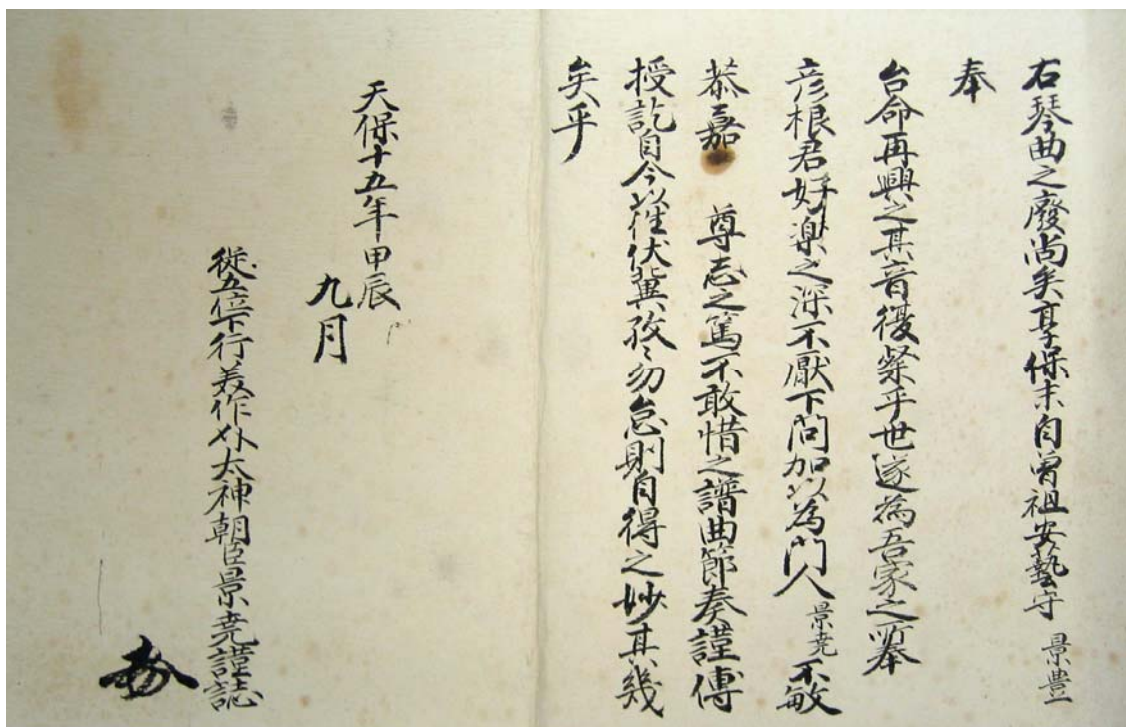 右琴曲之廢尚矣享保末自曽祖安藝守 景豊
奉
台命再興之其音復粲乎世遂為吾家之所奉
彦根君好樂之深不厭下問加以為門人 景尭 不敏
恭嘉 尊志之篤不敢惜之譜曲節奏謹傳
授訖自今以往伏冀孜〻勿怠則自得之妙其幾
矣乎
天保十五年甲辰
九月
從五位下行美作介大神朝臣景尭謹誌